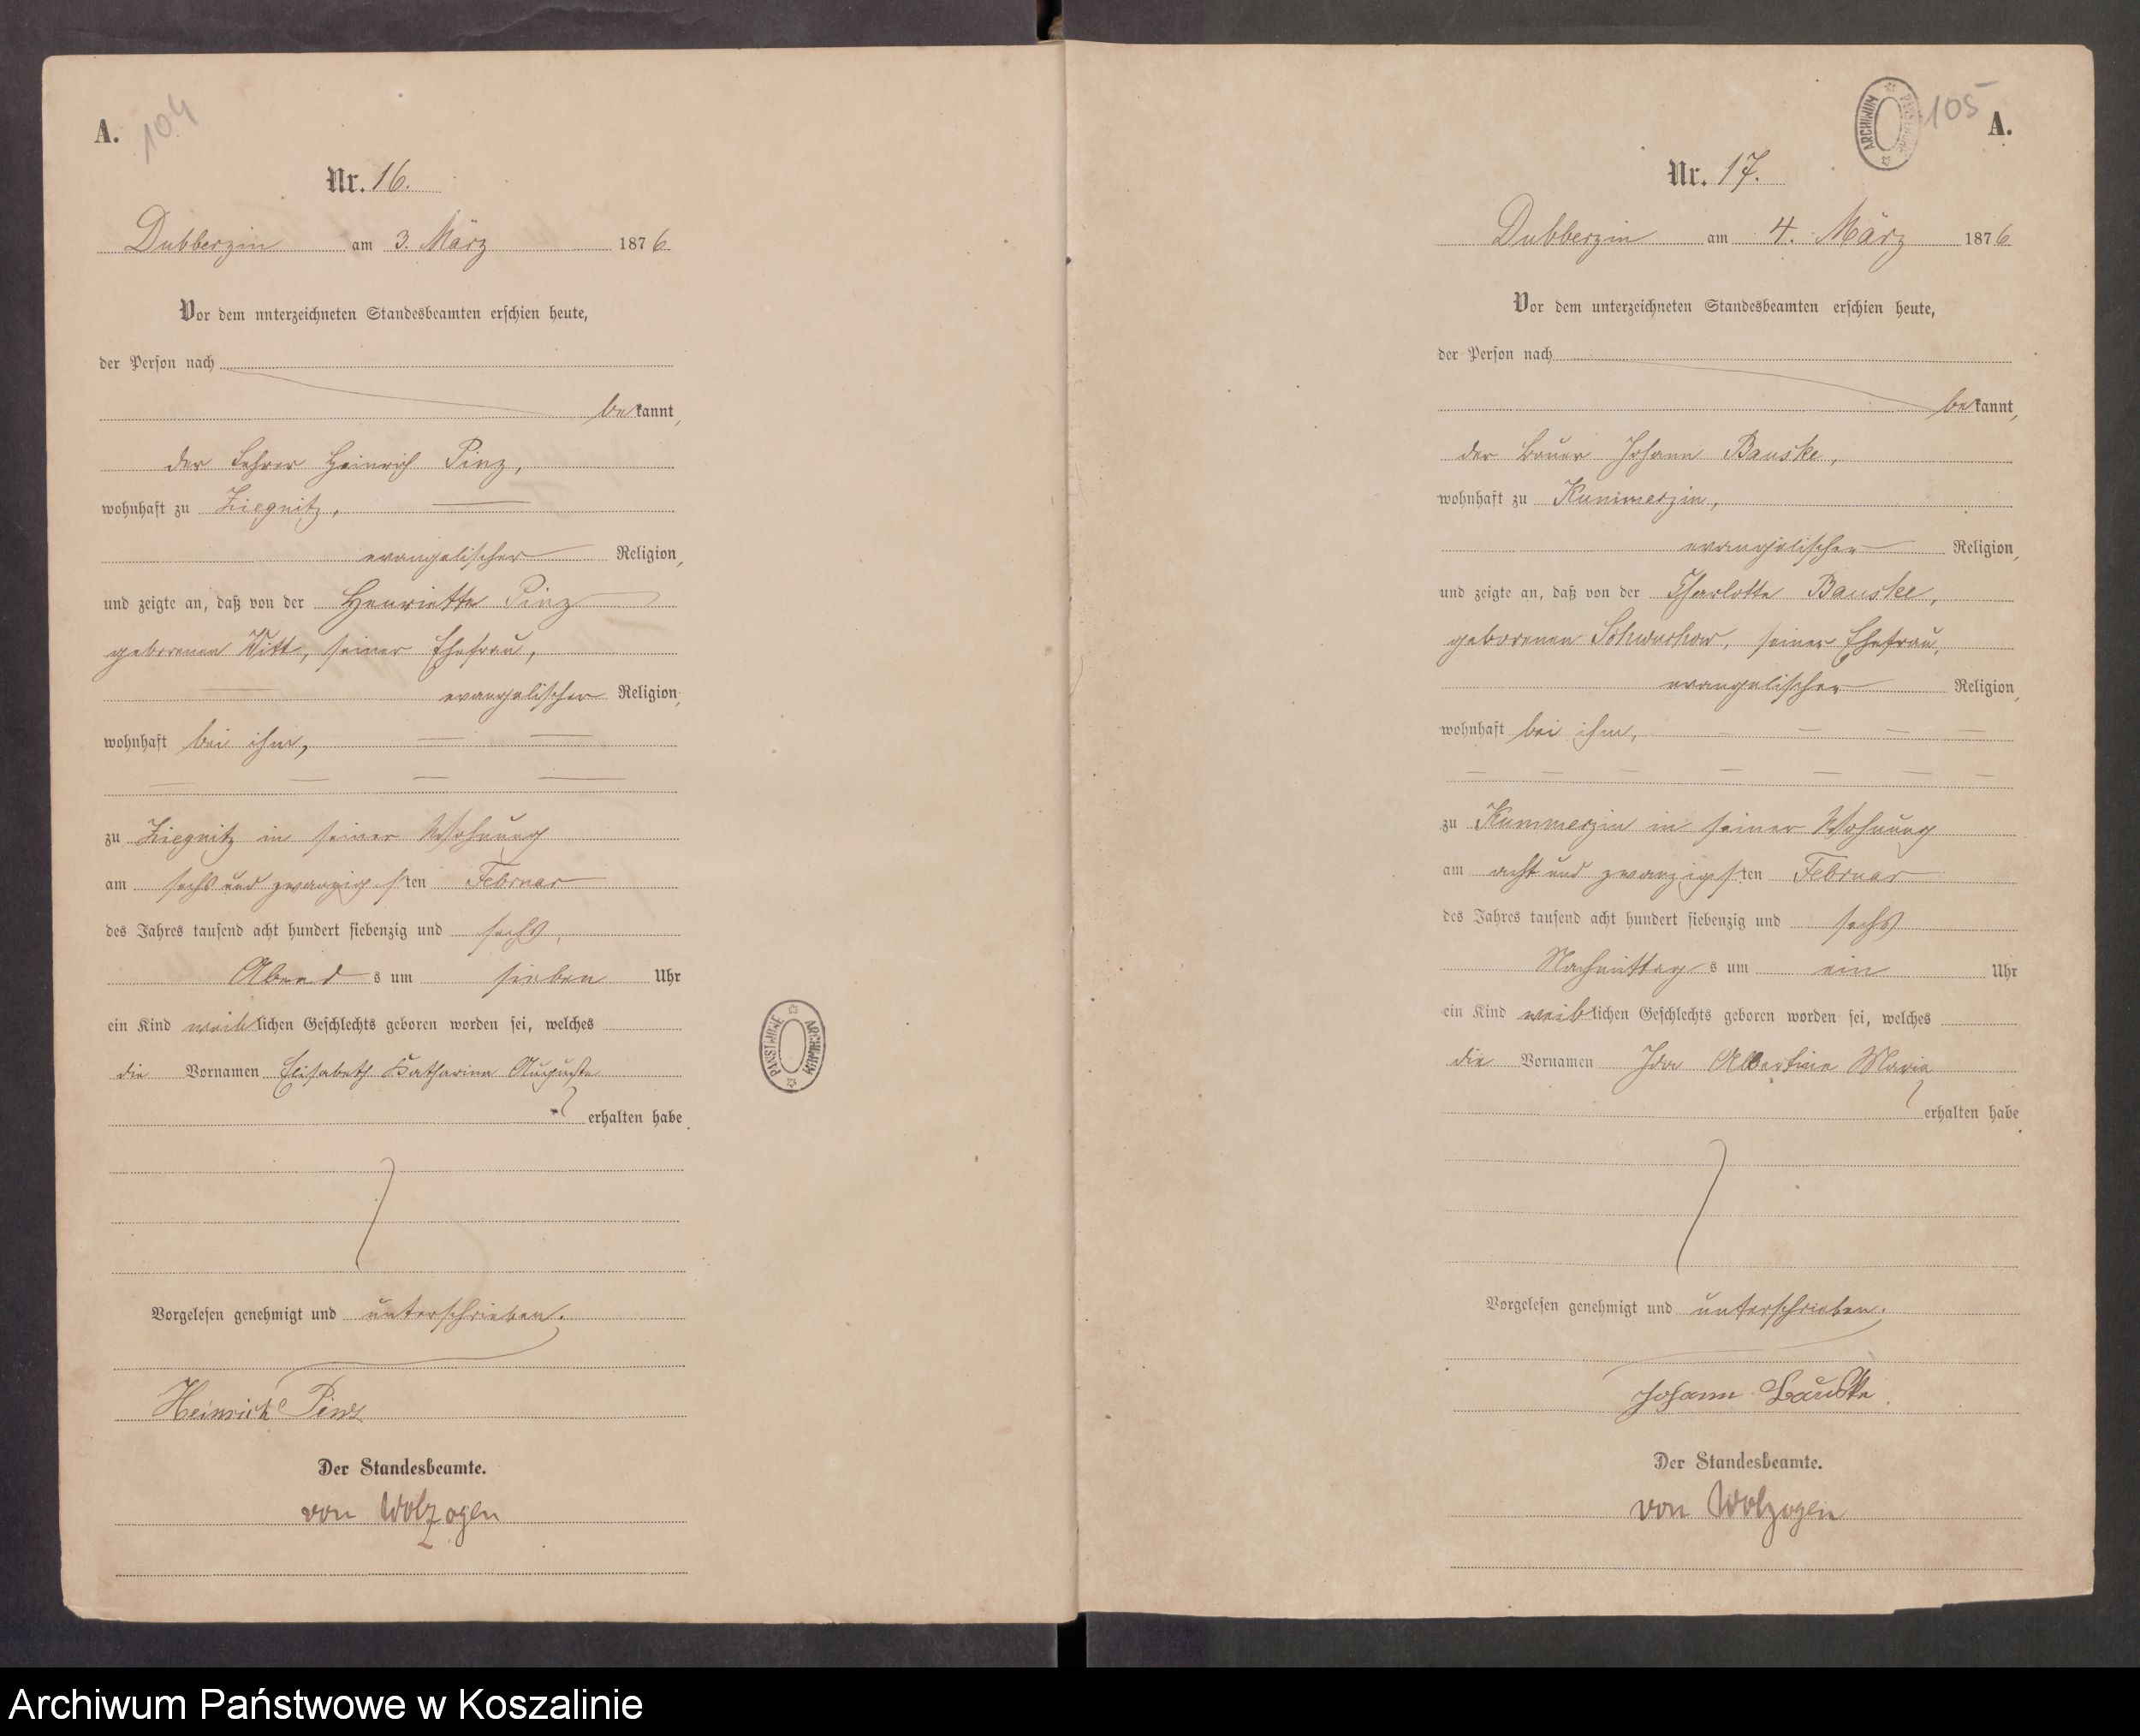 A.
104
Nr. 16.
Dubberzin am 3. März 1876
Vor dem unterzeichneten Standesbeamten erschien heute,
der Person nach
bekannt,
der Lehrer Heinrich Pinz,
wohnhaft zu Ziegnitz,
evangelischer Religion,
und zeigte an, daß von der Henriette Pinz
geborenen Witt, seiner Ehefrau,
evangelischer Religion,
wohnhaft bei ihm,
zu Ziegnitz in seiner Wohnung
am sechs und zwanzigsten Februar
des Jahres tausend acht hundert siebenzig und sechs,
Abends um sieben Uhr
ein Kind weiblichen Geschlechts geboren worden sei, welches
die Vornamen Elisabeth Katharina Auguste
erhalten habe.
Vorgelesen genehmigt und unterschrieben.
Heinrich Pinz
Der Standesbeamte.
von Wolzogen
PAŃSTWOWE ARCHIWUM
ARCHIWUM PAŃSTWOWE
105
A.
Nr. 17.
Dubberzin am 4. März 1876
Vor dem unterzeichneten Standesbeamten erschien heute,
der Person nach
bekannt,
der Bauer Johann Bauske,
wohnhaft zu Kummerzin,
evangelischer Religion,
und zeigte an, daß von der Charlotte Bauske,
geborenen Schwuchow, seiner Ehefrau,
evangelischer Religion,
wohnhaft bei ihm,
zu Kummerzin in seiner Wohnung
am acht und zwanzigsten Februar
des Jahres tausend acht hundert siebenzig und sechs
Nachmittags um ein Uhr
ein Kind weiblichen Geschlechts geboren worden sei, welches
die Vornamen Ida Albertine Marie
erhalten habe
Vorgelesen genehmigt und unterschrieben.
Johann Bauske
Der Standesbeamte.
von Wolzogen
Archiwum Państwowe w Koszalinie